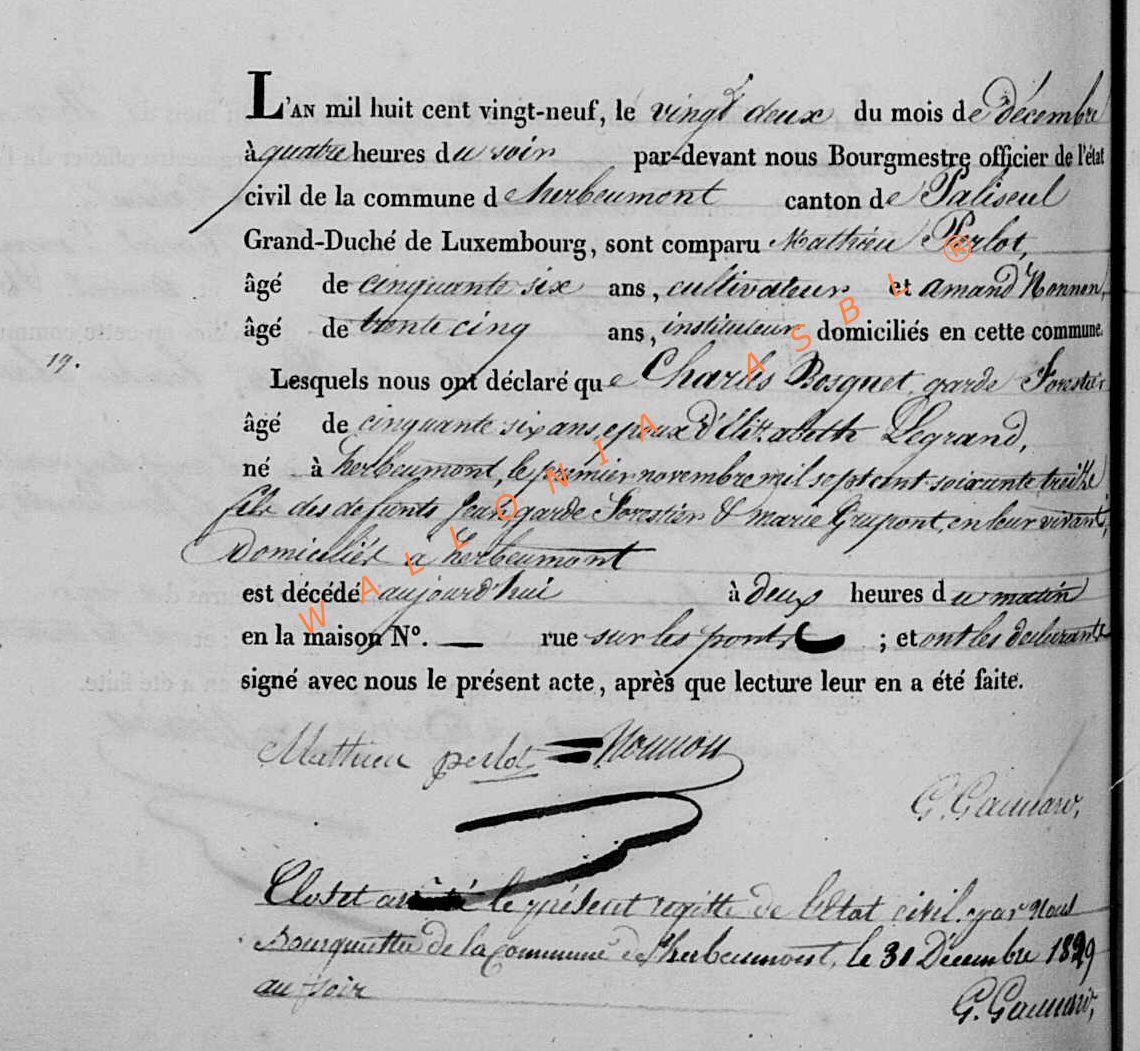 L'AN mil huit cent vingt-neuf, le vingt deux du mois de décembre
à quatre heures du soir par-devant nous Bourgmestre officier de l'état
civil de la commune d'herbeumont canton de Paliseul
Grand-Duché de Luxembourg, sont comparu Mathieu Perlot,
âgé de cinquante six ans, cultivateur et amand Nonnon,
âgé de trente cinq ans, instituteur domiciliés en cette commune.
19.
Lesquels nous ont déclaré que Charles Bosquet garde Forestier
âgé de cinquante six ans epoux d'Elizabeth Legrand,
né à herbeumont, le premier novembre mil sept cent soixante treize
fils des defunts Jean garde Forestier & marie Grupont, en leur vivant,
Domiciliés a herbeumont
est décédé aujourd'hui à deux heures du matin
en la maison N°. — rue sur les ponts ; et ont les declarants
signé avec nous le présent acte, après que lecture leur en a été faite.
Mathieu perlot Nonnon
G. Gannard,
Clos et arrêté le présent registre de l'Etat civil, par Nous
Bourguestre de la Commune de herbeumont, le 31 Décembre 1829
au soir
G. Gannard,
WALLONIA ASBL ®